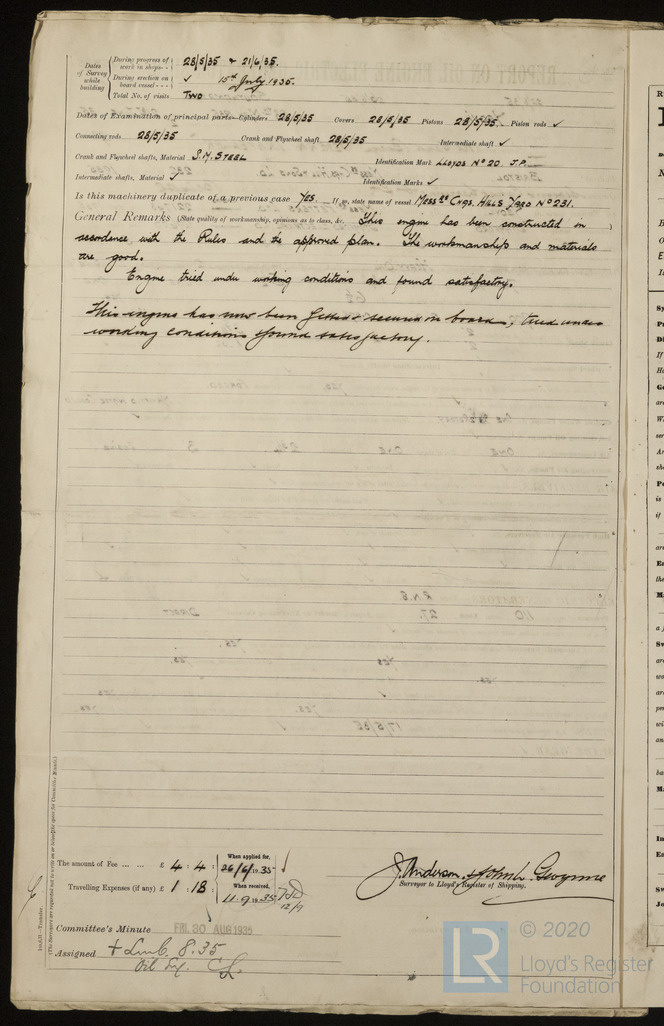 Dates of Survey while building
During progress of work in shops-- 28/5/35 & 21/6/35.
During erection on board vessel--- ✓ 15th July 1935.
Total No. of visits TWO
Dates of Examination of principal parts—Cylinders 28/5/35 Covers 28/5/35 Pistons 28/5/35. Piston rods ✓
Connecting rods 28/5/35 Crank and Flywheel shaft 28/5/35 Intermediate shaft ✓
Crank and Flywheel shafts, Material S.M. STEEL Identification Mark LLOYDS Nº 20 J.P.
Intermediate shafts, Material ✓ Identification Marks ✓
Is this machinery duplicate of a previous case Yes. If so, state name of vessel Messrs Chas. Hills Yard Nº 231.
General Remarks (State quality of workmanship, opinions as to class, &c. This engine has been constructed in
accordance with the Rules and the approved plan. The workmanship and materials
are good.
Engine tried under working conditions and found satisfactory.
This engine has now been fitted & secured on board, tried under
working conditions & found satisfactory.
The amount of Fee ... ... £ 4 : 4 : When applied for, 26/6/1935
Travelling Expenses (if any) £ 1 : 18 : When received, 11.9.1935 12/9
J. Anderson. & John L. Gwynne
Surveyor to Lloyd's Register of Shipping.
Committee's Minute FRI. 30 AUG 1935
Assigned + LMC 8.35
Oil Eng. CL
(The Surveyors are requested not to write on or below the space for Committee's Minute.)
© 2020
LR
Lloyd's Register
Foundation